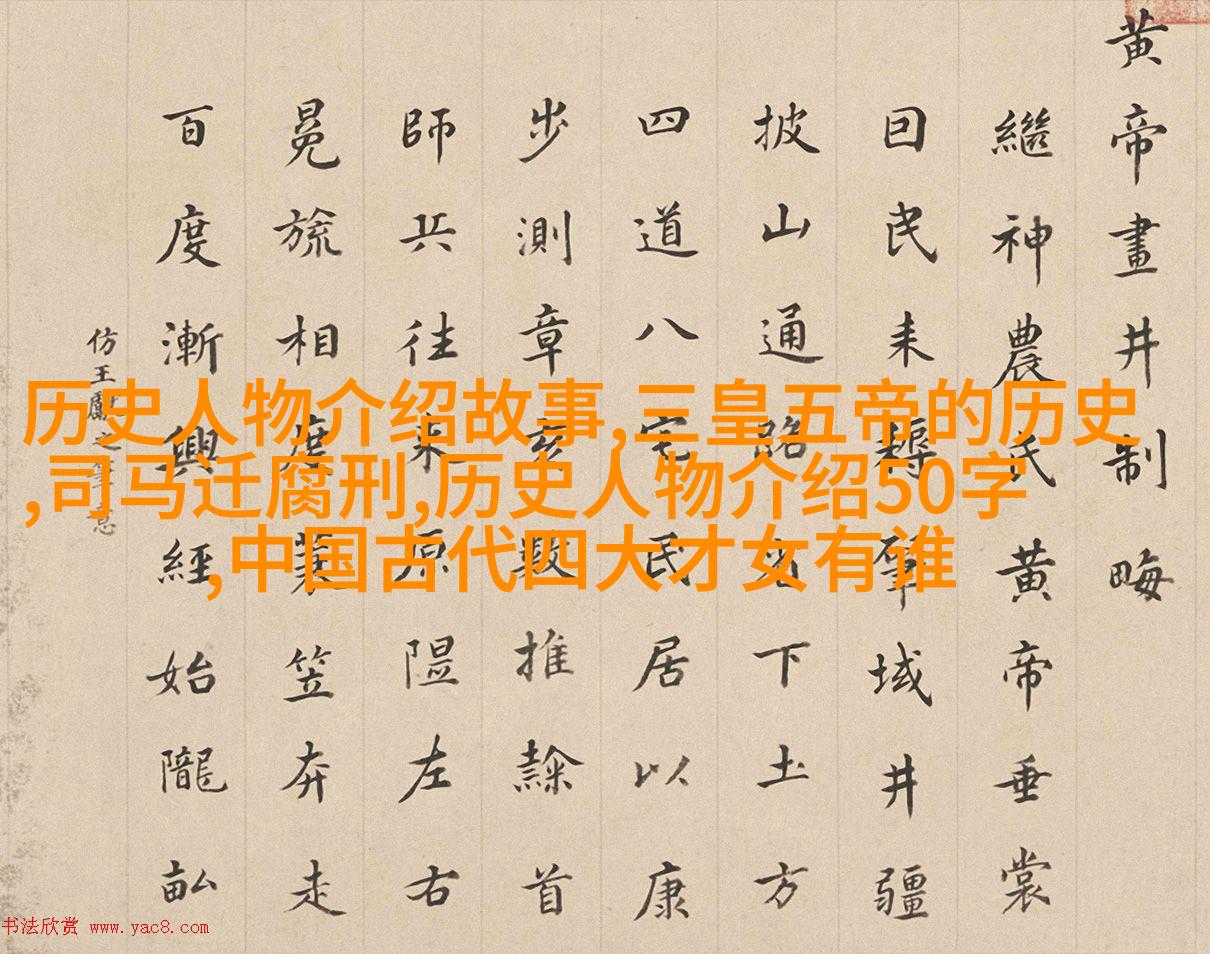 黄帝畫井制畮
繼神農氏黄帝垂裳
囙民耒耨肇域井疆
披山通路下土方
四道八宅民居以康
步測章亥數推隸首
師兵往來原隰左右
冕旒相度蓑笠奔走
百度漸興經始隴畝
仿王獻之筆意
历史人物介绍故事,三皇五帝的历史
,司马迁腐刑,历史人物介绍50字
,中国古代四大才女有谁
书法欣赏 www.yac8.com